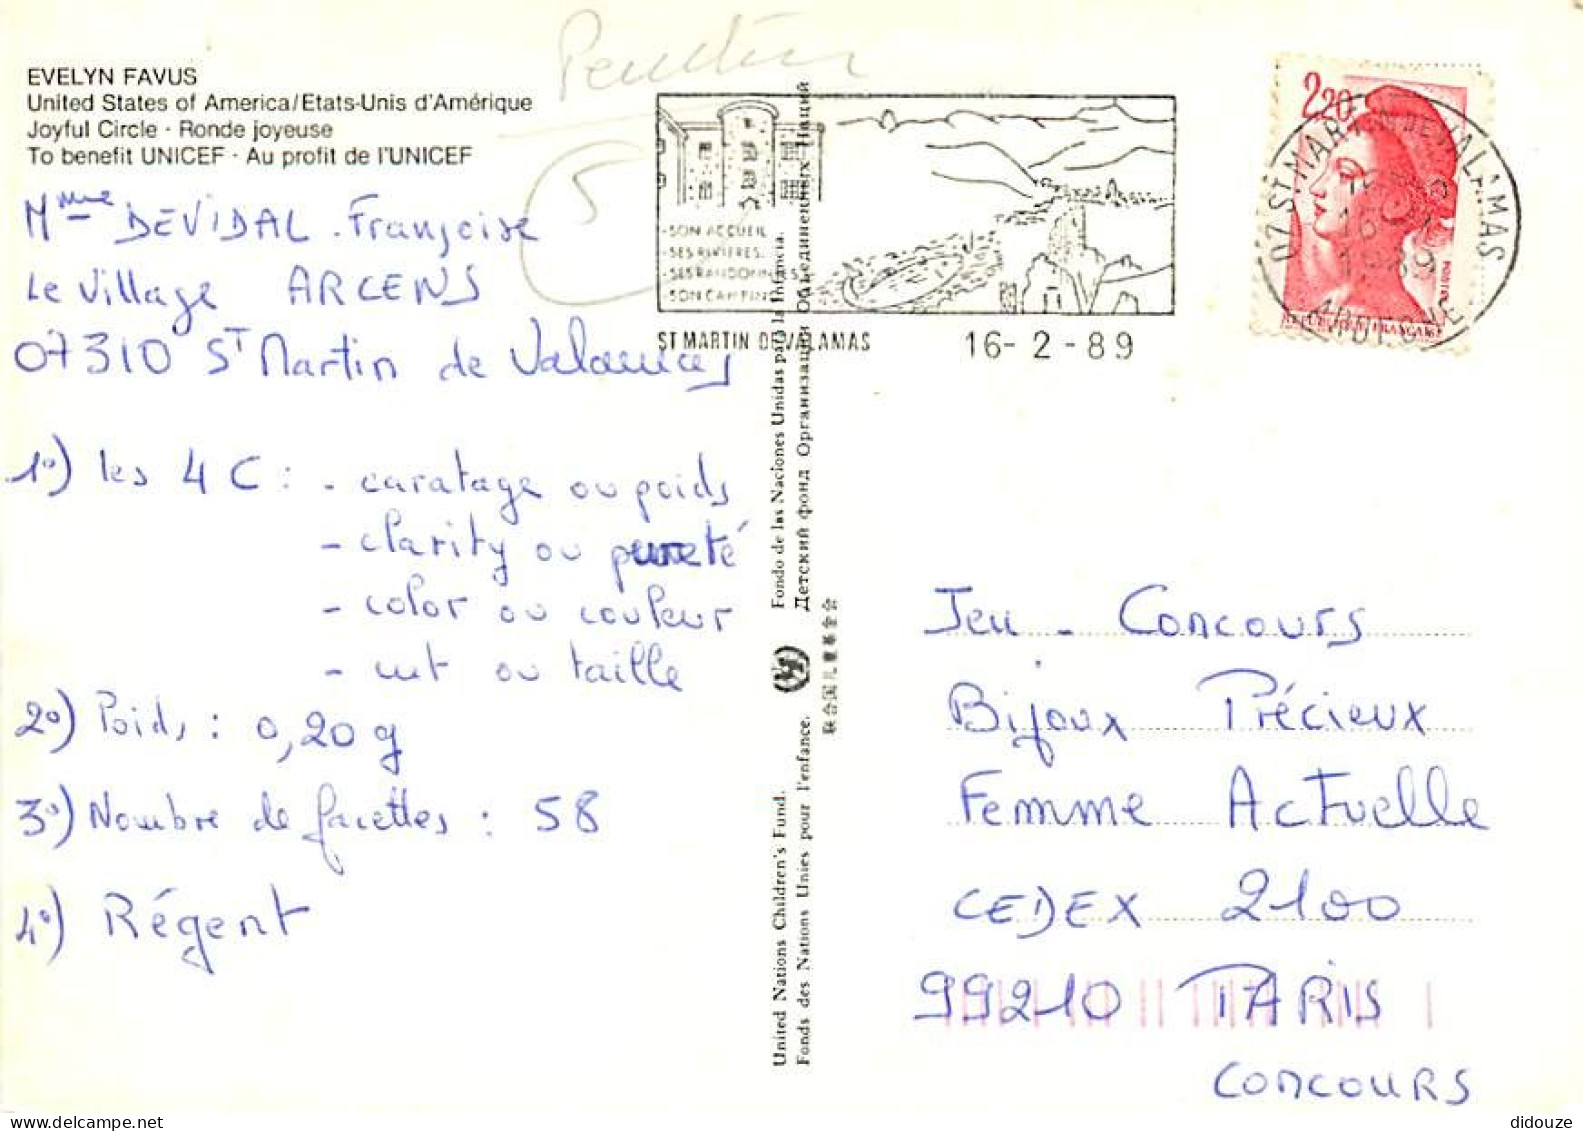 EVELYN FAVUS
United States of America/Etats-Unis d'Amérique
Joyful Circle · Ronde joyeuse
To benefit UNICEF · Au profit de l'UNICEF
5
Mme DEVIDAL. Françoise
Le Village ARCENS
07310 St Martin de Valamas
1°) les 4 C : - caratage ou poids
- clarity ou pureté
- color ou couleur
- cut ou taille
2°) Poids : 0,20 g
3°) Nombre de facettes : 58
4°) Régent
- SON ACCUEIL
- SES RIVIÈRES
- SES RANDONNÉES
- SON CAMPING
ST MARTIN DE VALAMAS 16-2-89
2,20
07 ST MARTIN DE VALAMAS
16
1989
ARDECHE
POSTES
REPUBLIQUE FRANÇAISE
United Nations Children's Fund.
Fonds des Nations Unies pour l'enfance.
Fondo de las Naciones Unidas para la Infancia.
Детский фонд Организации Объединенных Наций
联合国儿童基金会
Jeu - Concours
Bijoux Précieux
Femme Actuelle
CEDEX 2100
99210 PARIS
CONCOURS
didouze